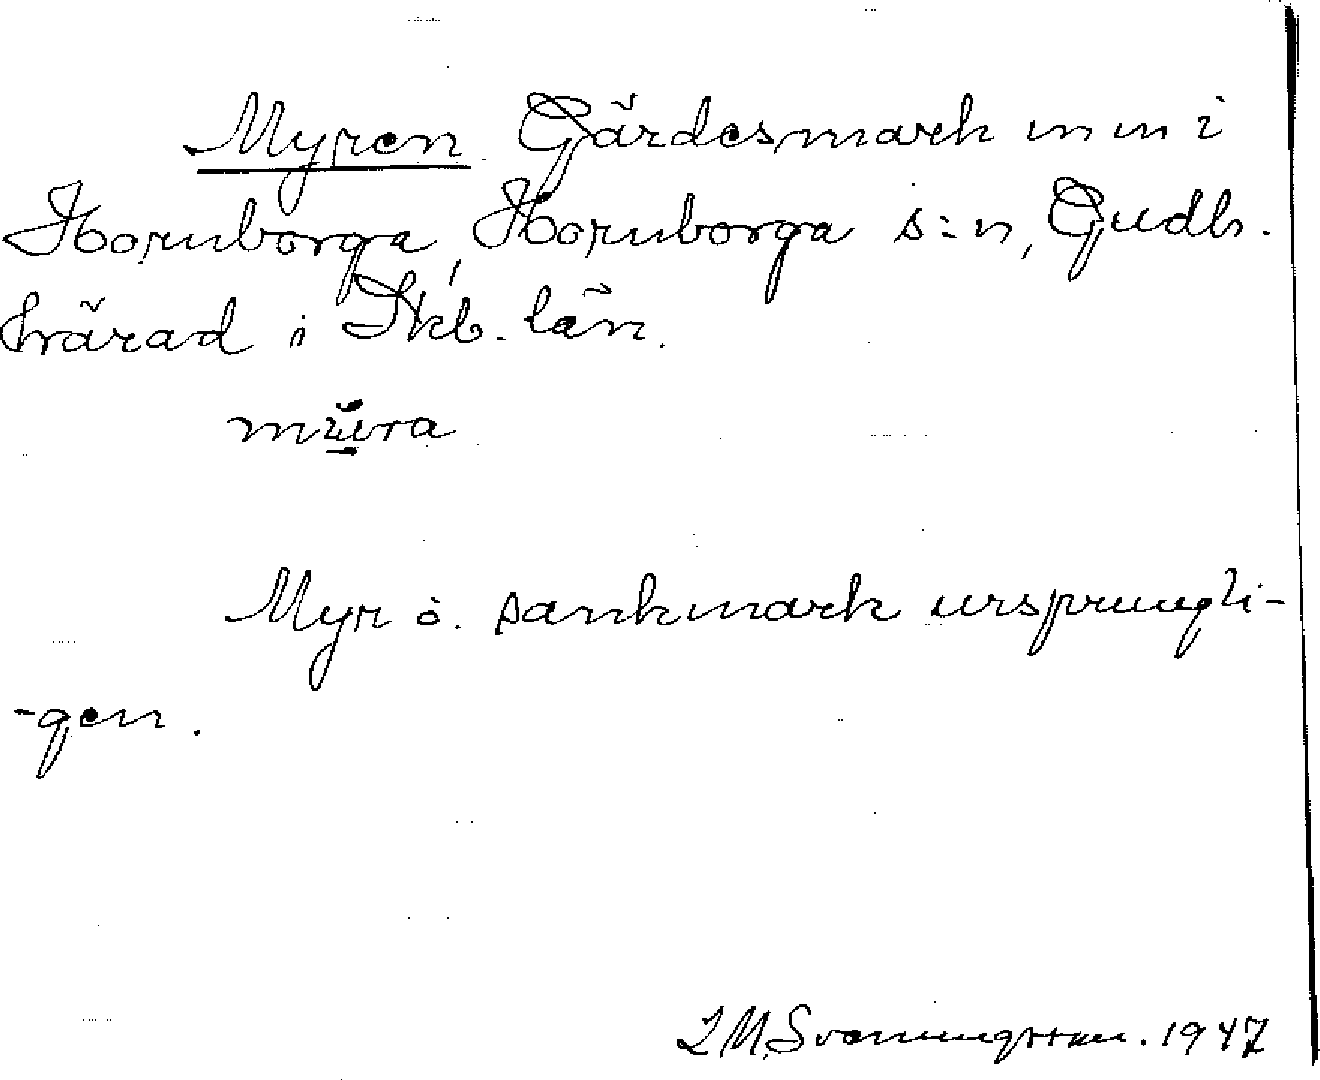 Myren Gärdesmark m m i
Hornborga, Hornborga s:n, Gudh.
härad i Skb. län.
Myr o. sankmark ursprungli-
-gen.
L M Svenningsson. 1947